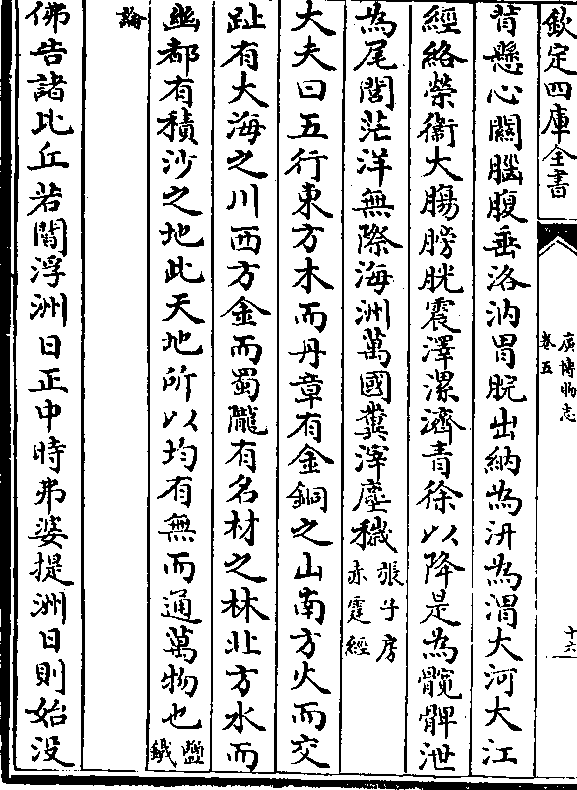 欽定四庫全書
廣博物志
卷五
十六
背懸心闗腦腹垂洛汭胃脘出納為汧為渭大河大江
經絡榮衞大腸膀胱震澤漯濟青徐以降是為髖髀泄
為尾閭茫洋無際海洲萬國糞滓塵穢張子房赤霆經
大夫曰五行東方木而丹章有金銅之山南方火而交
趾有大海之川西方金而蜀隴有名材之林北方水而
幽都有積沙之地此天地所以均有無而通萬物也鹽鐵
論
佛告諸比丘若閻浮洲日正中時弗婆提洲日則始没